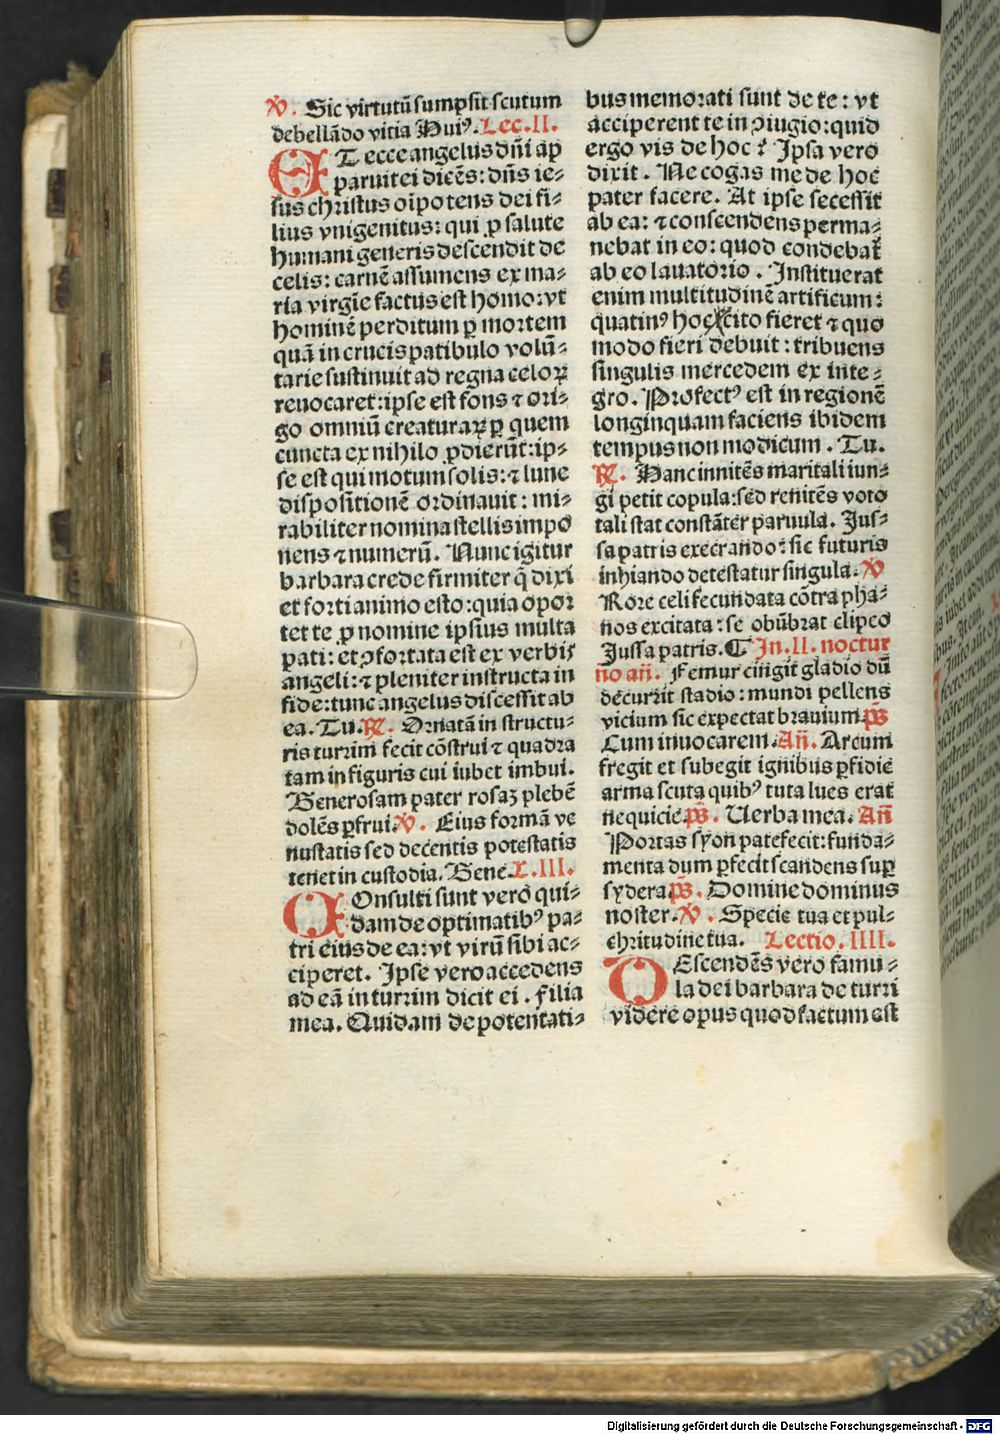 ℣. Sic virtutū sumpsit scutum
debellādo vitia Huiꝰ. Lec.II.
ET ecce angelus dn̄i ap
paruit ei dicēs: dn̄s ie-
sus christus oīpotens dei fi-
lius vnigenitus: qui ꝓ salute
humani generis descendit de
celis: carnē assumens ex ma-
ria virgīe factus est homo: vt
hominē perditum ꝑ mortem
quā in crucis patibulo volū-
tarie sustinuit ad regna celoꝝ
reuocaret: ipse est fons ⁊ ori-
go omniū creaturaꝝ ꝑ quem
cuncta ex nihilo ꝓdierūt: ip-
se est qui motum solis: ⁊ lune
dispositionē ordinauit: mi-
rabiliter nomina stellis impo
nens ⁊ numerū. Nunc igitur
barbara crede firmiter q̄ dixi
et forti animo esto: quia opor
tet te ꝓ nomine ipsius multa
pati: et ↄfortata est ex verbis
angeli: ⁊ pleniter instructa in
fide: tunc angelus discessit ab
ea. Tu. ℟. Ornatā in structu-
ris turrim fecit cōstrui ⁊ quadra
tam in figuris cui iubet imbui.
Generosam pater rosaꝫ plebē
dolēs ꝑfrui. ℣. Eius formā ve
nustatis sed decentis potestatis
tenet in custodia. Gene. L.III.
COnsulti sunt vero qui-
dam de optimatibꝰ pa-
tri eius de ea: vt virū sibi ac-
ciperet. Ipse vero accedens
ad eā in turrim dicit ei. Filia
mea. Quidam de potentati-
bus memorati sunt de te: vt
acciperent te in ↄiugio: quid
ergo vis de hoc? Ipsa vero
dixit. Ne cogas me de hoc
pater facere. At ipse secessit
ab ea: ⁊ conscendens perma-
nebat in eo: quod condebat̄
ab eo lauatorio. Instituerat
enim multitudinē artificum:
quatinꝰ hoc cito fieret ⁊ quo
modo fieri debuit: tribuens
singulis mercedem ex inte-
gro. Profectꝰ est in regionē
longinquam faciens ibidem
tempus non modicum. Tu.
℟. Hanc innitēs maritali iun-
gi petit copula: sed renitēs voto
tali stat constāter paruula. Jus-
sa patris execrando: sic futuris
inhiando detestatur singula. ℣
Rore celi fecundata cōtra pha-
nos excitata: se obūbrat clipeo
Jussa patris. ¶ In.II. noctur
no an̄. Femur cīngit gladio dū
decurrit stadio: mundi pellens
vicium sic expectat brauium. p̄s
Cum inuocarem. An̄. Arcum
fregit et subegit ignibus ꝑfidie
arma scuta quibꝰ tuta lues erat
nequicie. p̄s. Uerba mea. An̄
Portas syon patefecit: funda-
menta dum ꝑfecit scandens suꝑ
sydera p̄s. Domine dominus
noster. ℣. Specie tua et pul-
chritudine tua. Lectio.IIII.
DEscendēs vero famu-
la dei barbara de turri
videre opus quod factum est
Digitalisierung gefördert durch die Deutsche Forschungsgemeinschaft - DFG